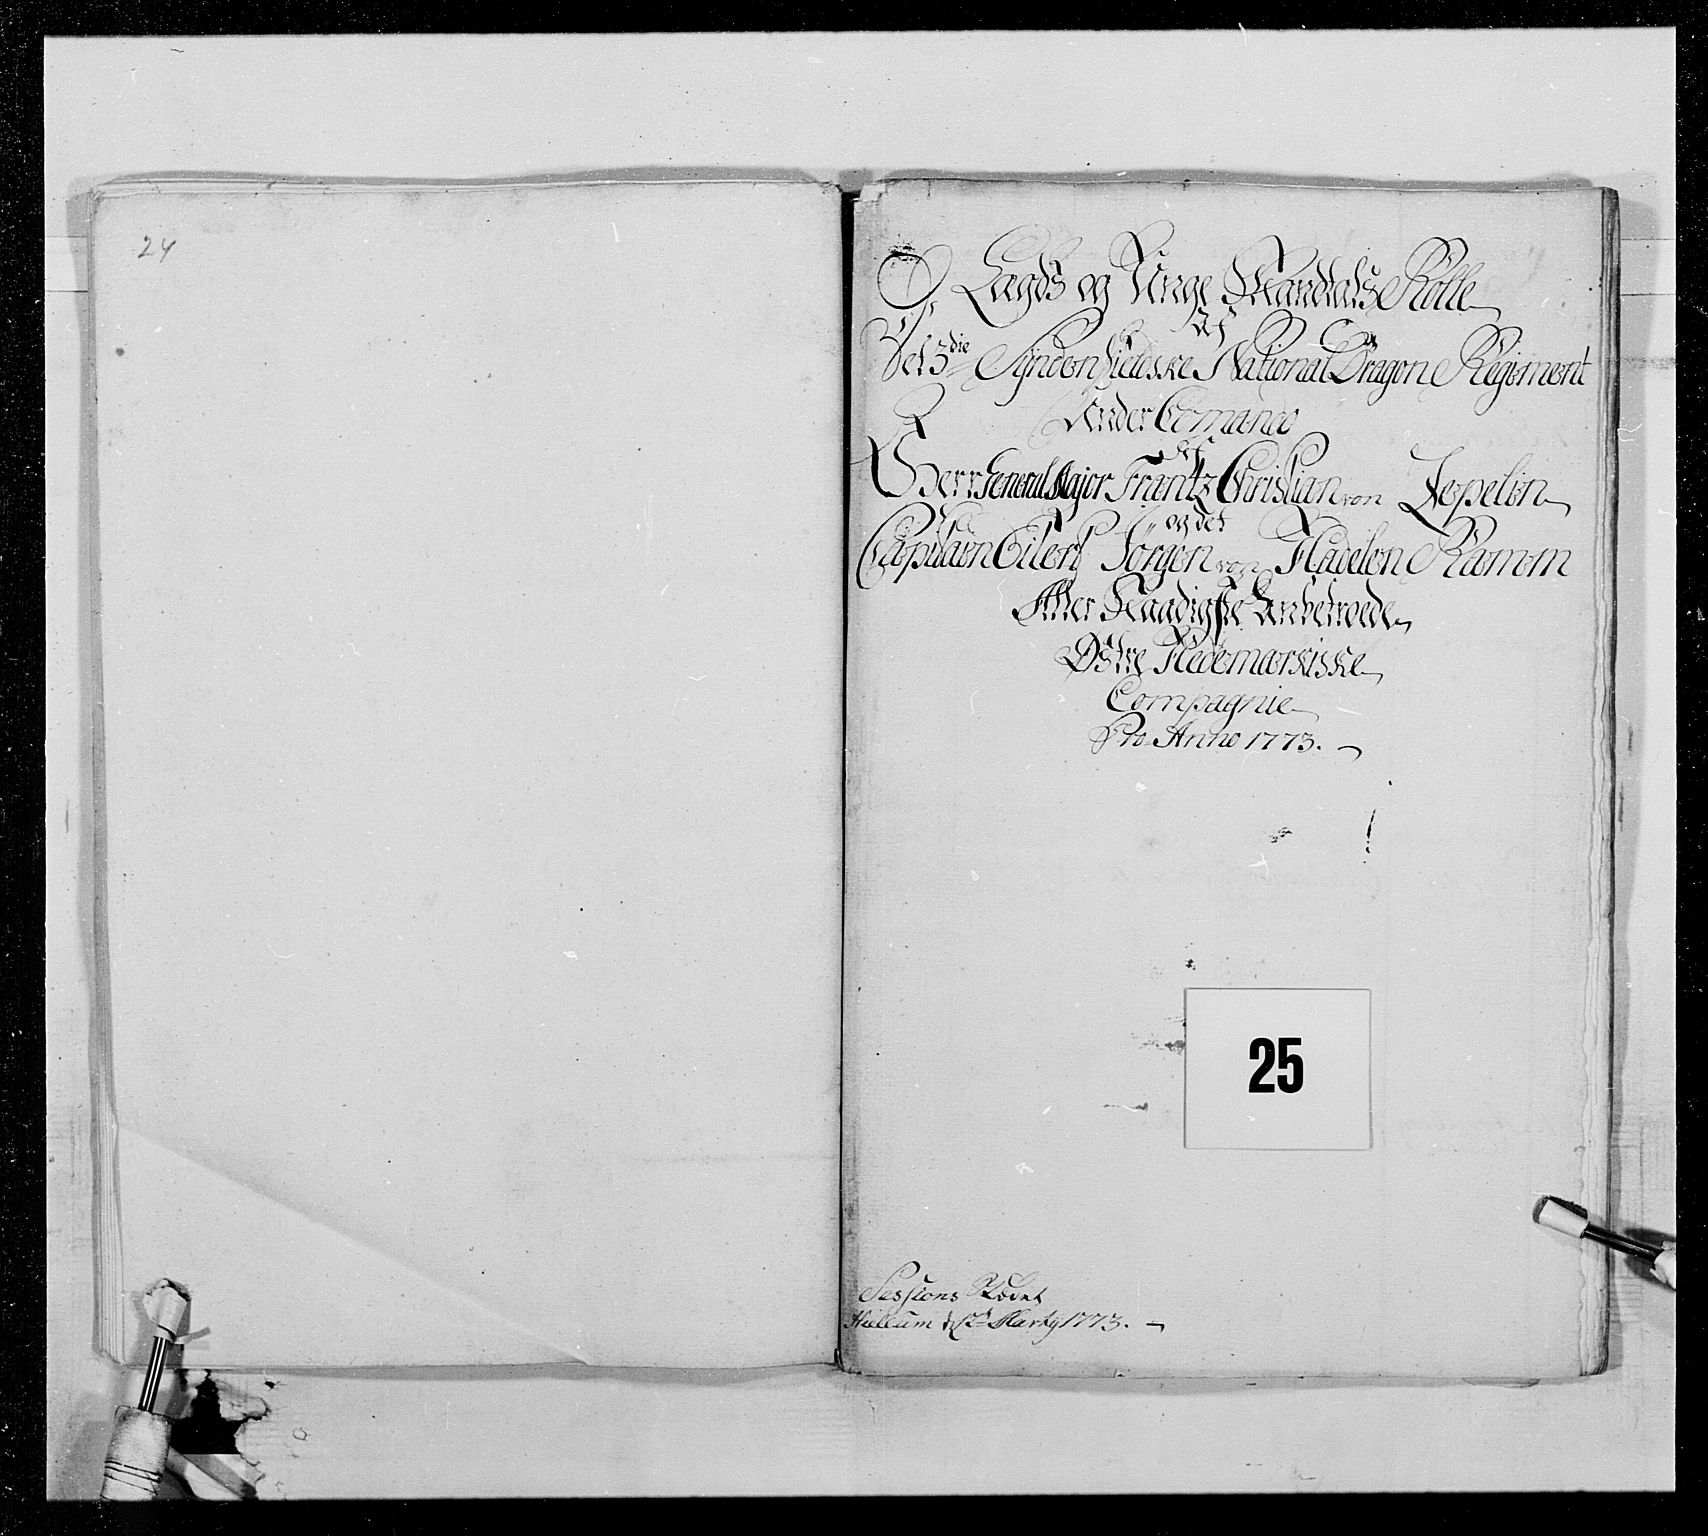 24
Lægds og Unge Mandtals Rolle
Af
Det 3die Synden Fieldske National Dragon Regiment
Under Comando
af
Herr General Major Frantz Christian von Zepelin
og det
Capitain Eilert Jørgen von Hadelen Ramm
Aller Naadigste Anbetroede
Østre Hedemarkiske
Compagnie
Pro Anno 1773.
25
Sessions Stædet
Martÿ 1773.